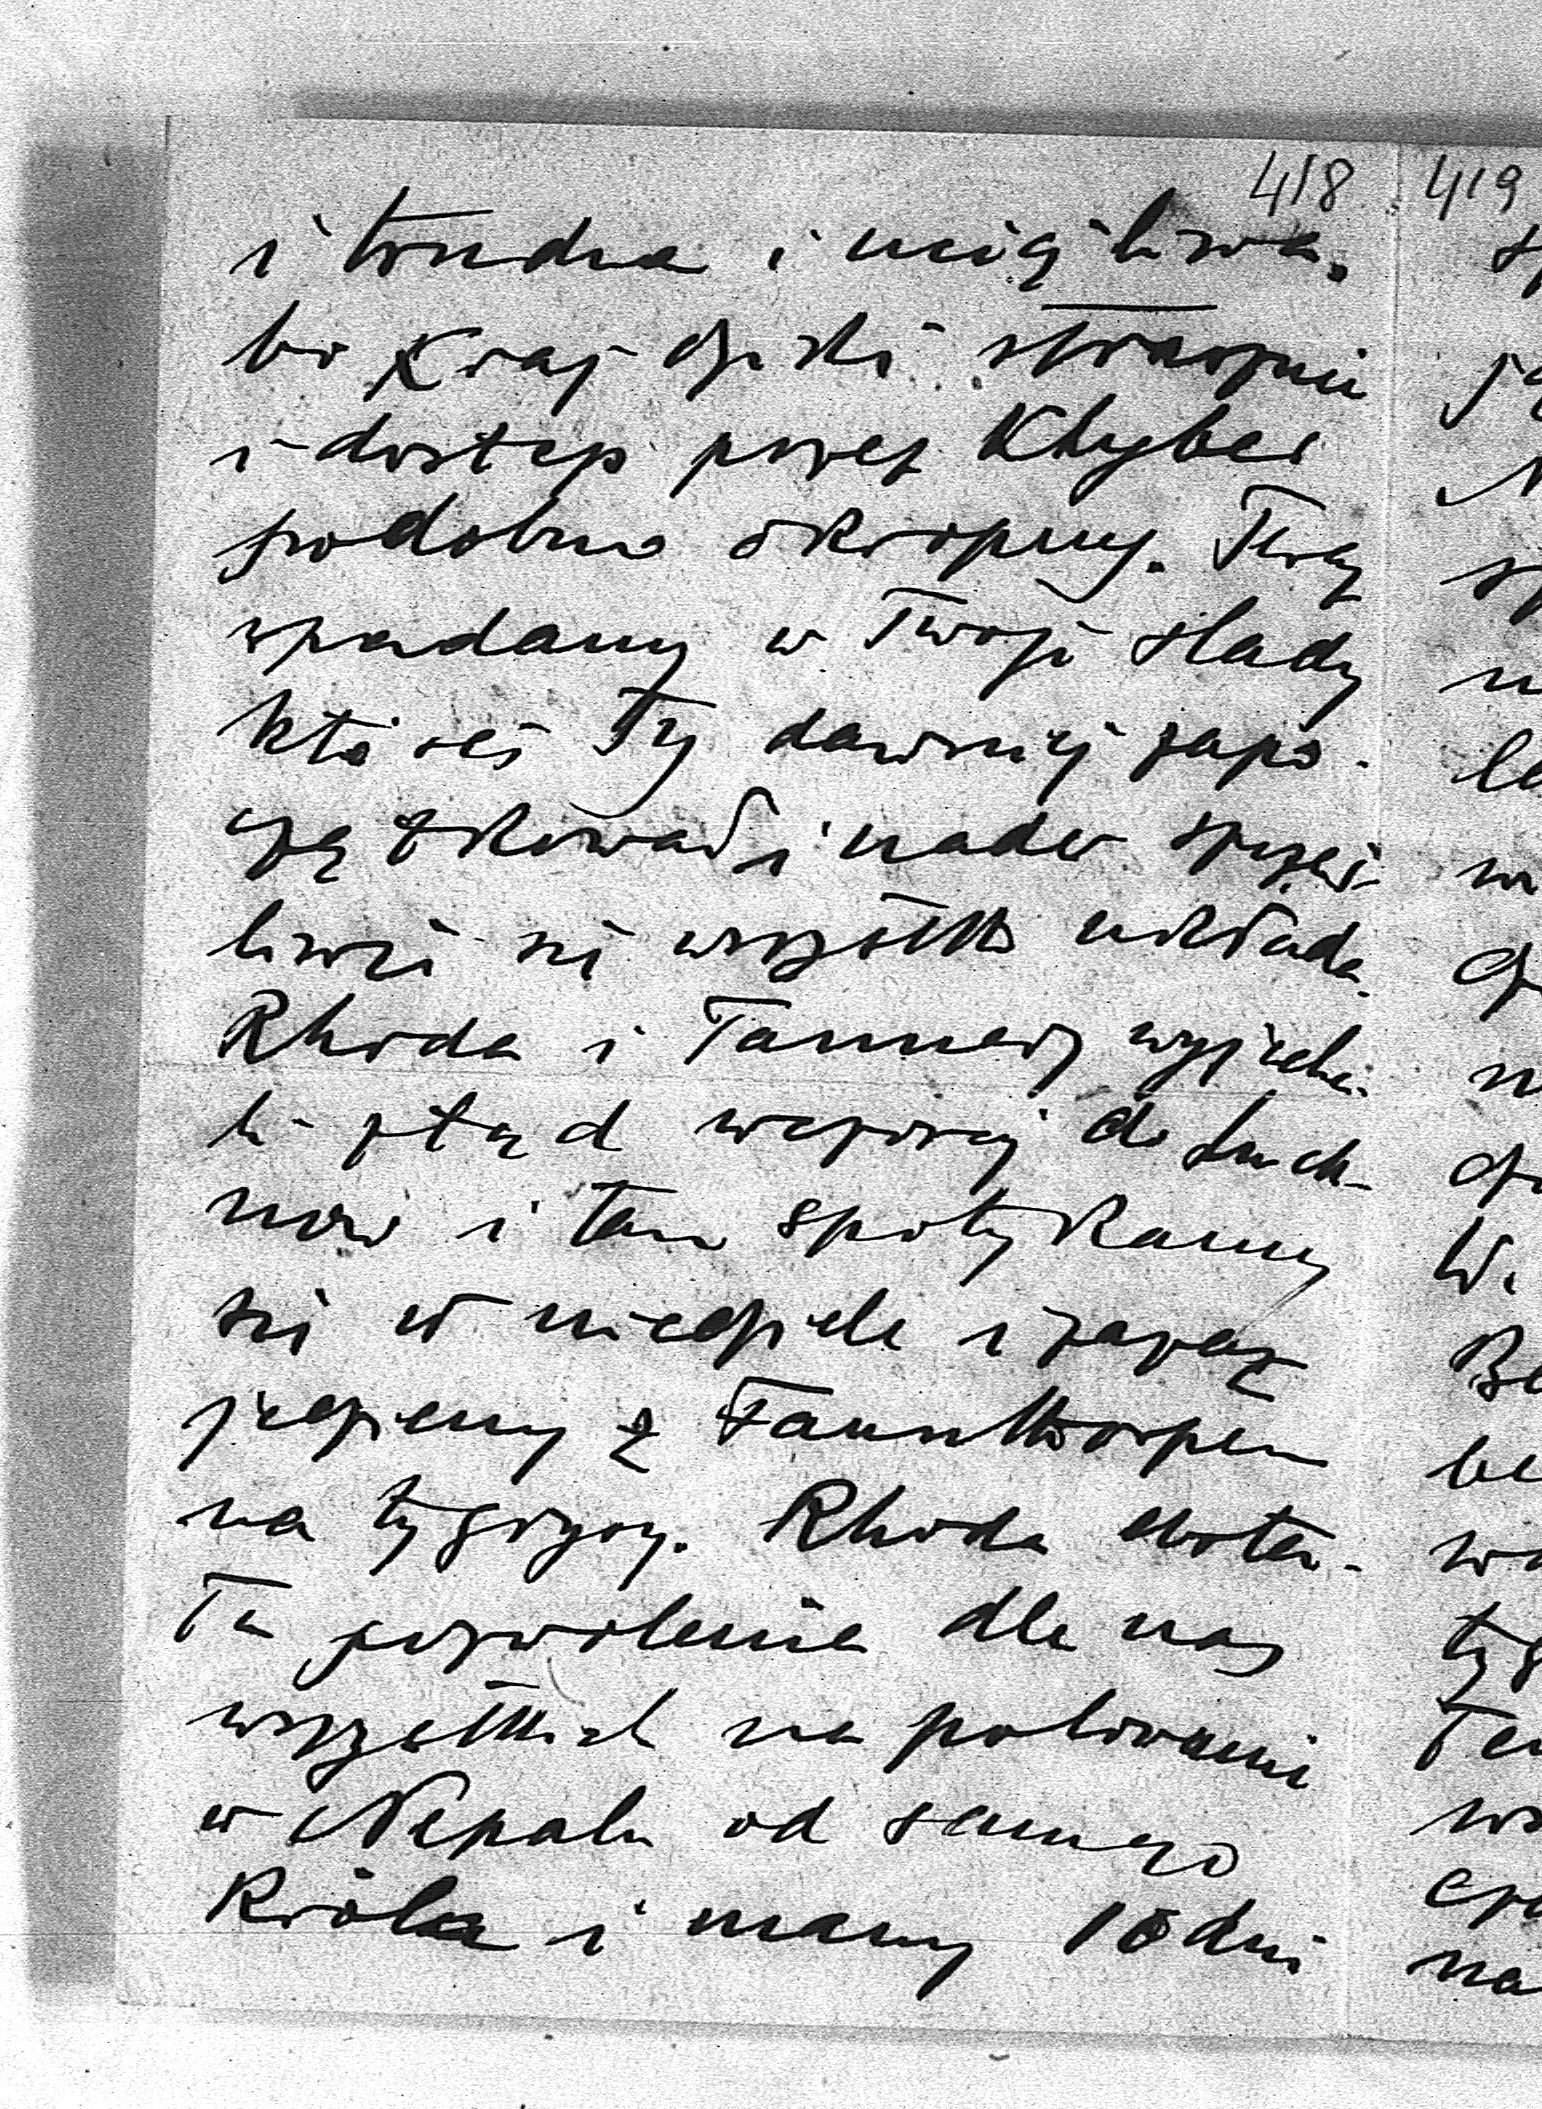 418
i trudna i uciążliwa,
bo Kraj dziki strasznie
i dostęp przez Khyber
podobno okropny. Teraz
wpadamy w Twoje ślady
któreś Ty dawniej zapo-
czątkował i nader szczęś-
liwie się wszystko układa.
Rhoda i Tannery wyjecha-
li stąd wczoraj do Luck-
now i tam spotykamy
się w niedziele i zaraz
jedziemy z Faunthorpem
na tygrysy. Rhoda dosta-
ła pozwolenie dla nas
wszystkich na polowanie
w Nepalu od samego
Króla i mamy 10 dni
419